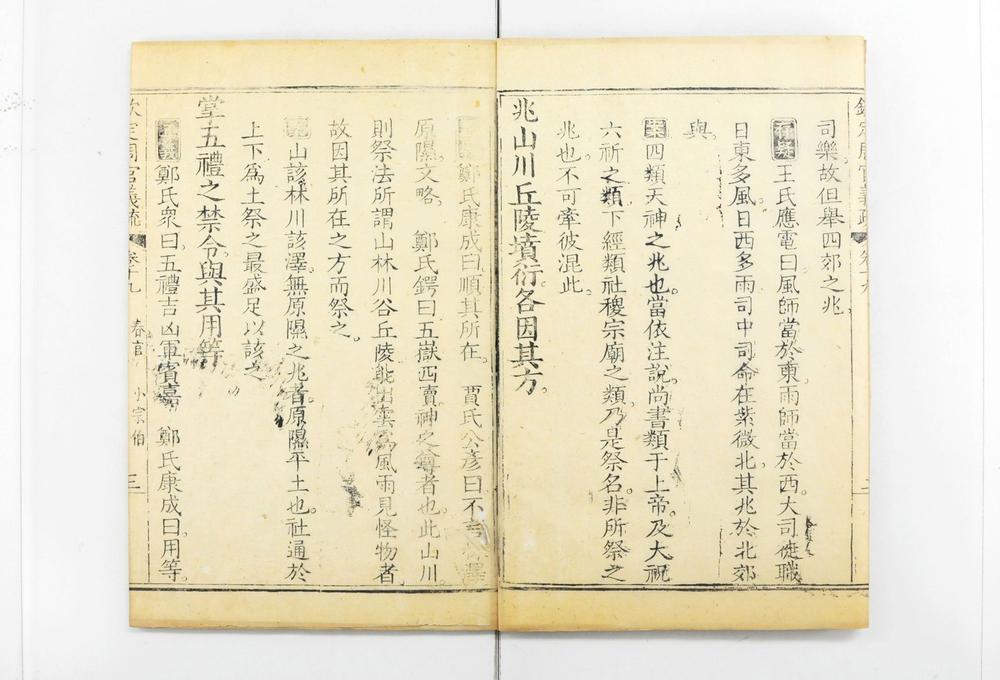 欽定周官義疏
司樂故但舉四郊之兆
存疑 王氏應電曰風師當於東雨師當於西大司徒職
日東多風日西多雨司中司命在紫微北其兆於北郊
與
案 四類天神之兆也當依注說尚書類于上帝及大祝
六祈之類下經類社稷宗廟之類乃是祭名非所祭之
兆也不可牽彼混此
兆山川丘陵墳衍各因其方
鄭氏康成曰順其所在 賈氏公彥曰不言
原隰文略 鄭氏鍔曰五嶽四瀆神之尊者也此山川
則祭法所謂山林川谷丘陵能出雲為風雨見怪物者
故因其所在之方而祭之
山該林川該澤無原隰之兆者原隰平土也社通於
上下為土祭之最盛足以該之
掌五禮之禁令與其用等
鄭氏衆曰五禮吉凶軍賓嘉 鄭氏康成曰用等
欽定周官義疏 卷十九 春官 小宗伯 三